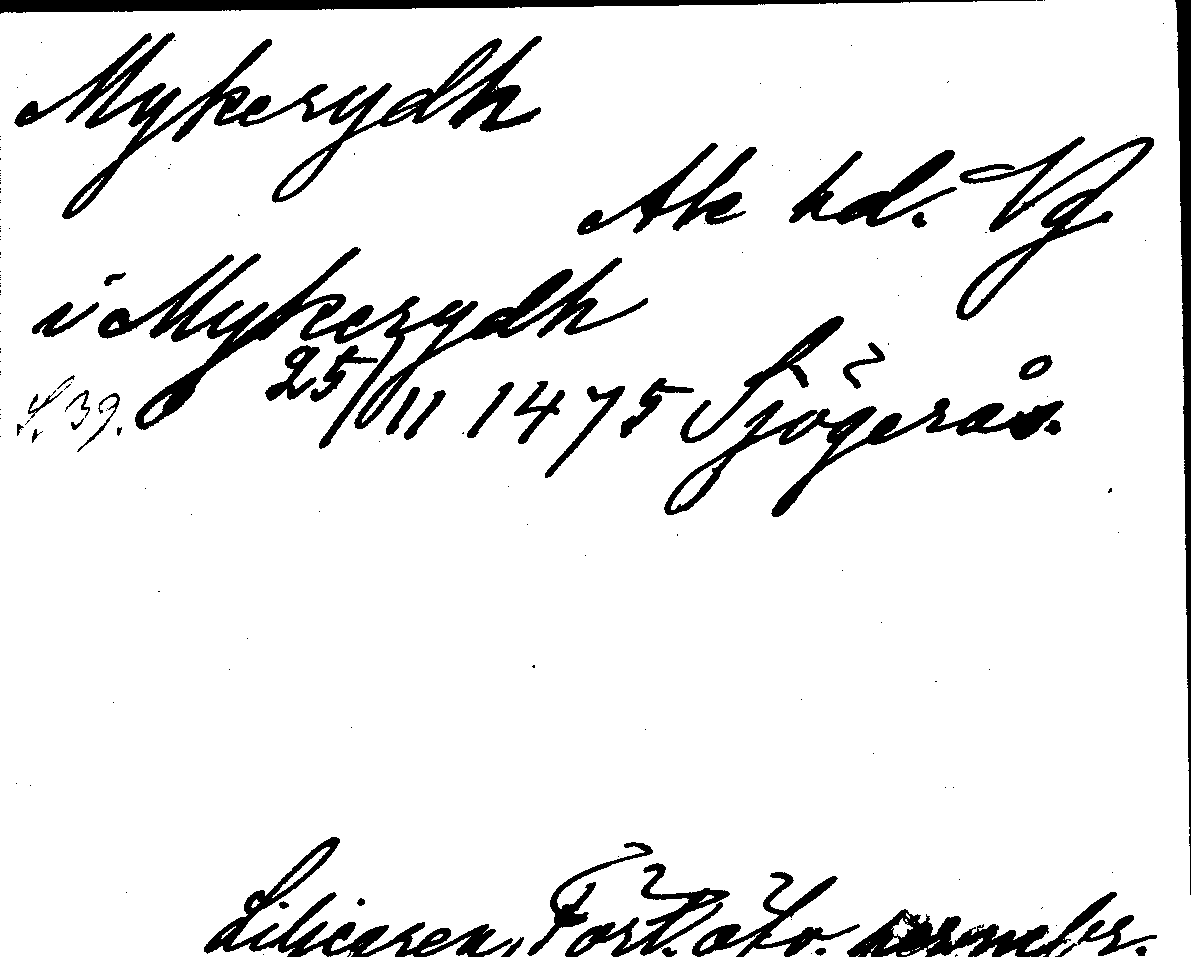 Mykerydh
Ale hd. Vg.
i Mykerydh
S. 39. 25/11 1475 Sjögerås.
Liljegren, Fört. öfv. permebr.